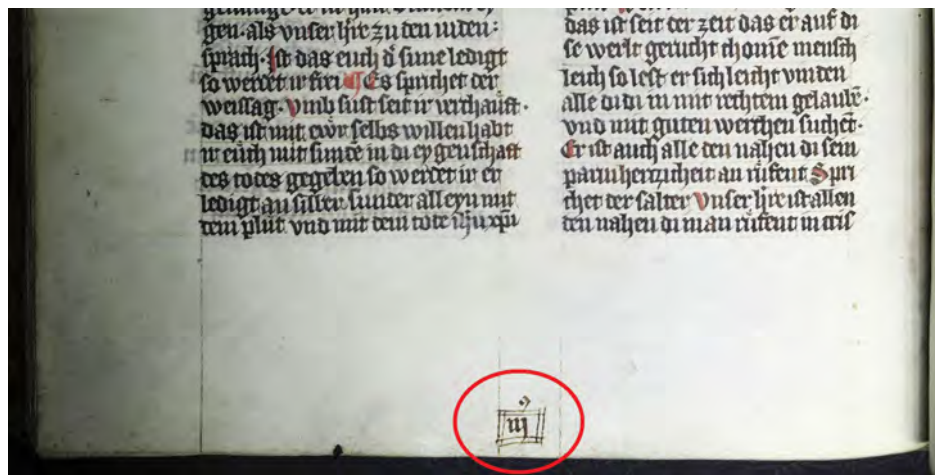 gen·als vnser hr̄e zu den iuden:
sprach·Ist das euch d̓ sune ledigt
so werdet ir frei ¶ Es sprichet der
weissag·vmb sust seit ir verchauft·
das ist mit ewr selbs willen habt
ir euch mit sunde in di eygenschaft
des todes gegeben so werdet ir er
ledigt an silber sunder alleyn mit
dem plut vnd mit dem tode ihū xp̄i
das ist seit der zeit das er auf di
se werlt gerucht chom̄e mensch
leich so lest er sich leicht vinden
alle di di in mit rechtem gelaubē·
vnd mit guten werchen suchēt·
Er ist auch alle den nahen di sein
parmherzicheit an rufent Spri
chet der salter Vnser hr̄e ist allen
den nahen di in an rufent in cris
iijꝰ